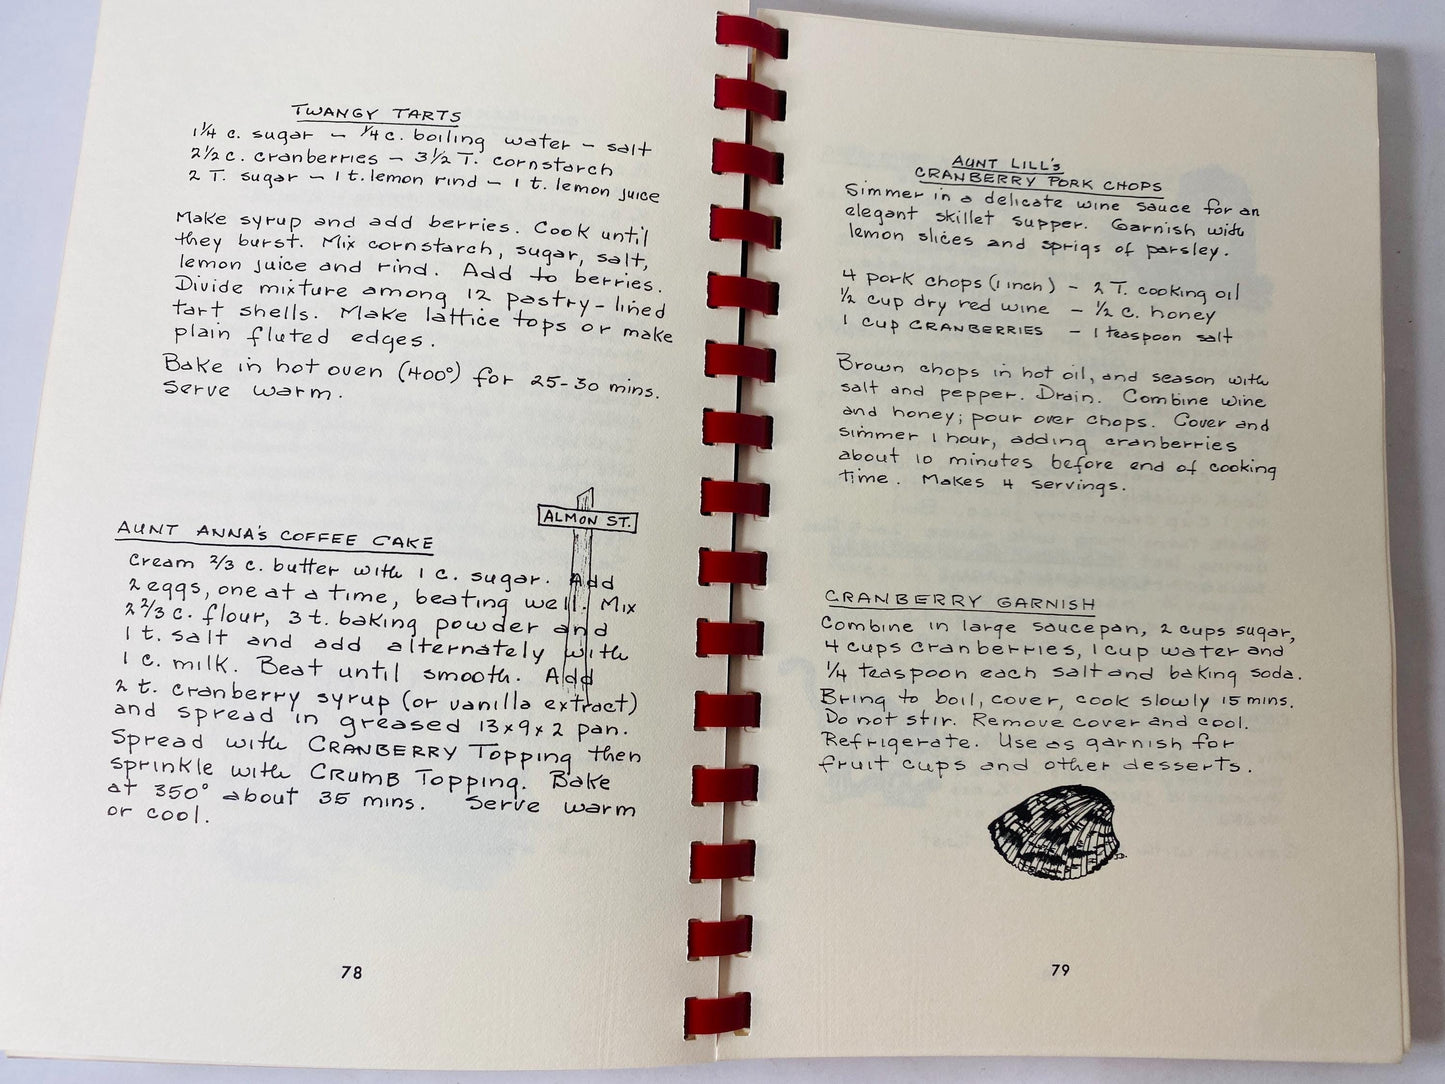 TWANGY TARTS
1¼ c. sugar – ¼ c. boiling water – salt
2½ c. cranberries – 3½ T. cornstarch
2 T. sugar – 1 t. lemon rind – 1 t. lemon juice
Make syrup and add berries. Cook until
they burst. Mix cornstarch, sugar, salt,
lemon juice and rind. Add to berries.
Divide mixture among 12 pastry-lined
tart shells. Make lattice tops or make
plain fluted edges.
Bake in hot oven (400°) for 25-30 mins.
Serve warm.
ALMON ST.
AUNT ANNA'S COFFEE CAKE
Cream 2/3 c. butter with 1 c. sugar. Add
2 eggs, one at a time, beating well. Mix
2 2/3 c. flour, 3 t. baking powder and
1 t. salt and add alternately with
1 c. milk. Beat until smooth. Add
2 t. cranberry syrup (or vanilla extract)
and spread in greased 13x9x2 pan.
Spread with CRANBERRY TOPPING then
sprinkle with CRUMB TOPPING. Bake
at 350° about 35 mins. Serve warm
or cool.
78
AUNT LILL'S
CRANBERRY PORK CHOPS
Simmer in a delicate wine sauce for an
elegant skillet supper. Garnish with
lemon slices and sprigs of parsley.
4 pork chops (1 inch) – 2 T. cooking oil
½ cup dry red wine – ½ c. honey
1 cup CRANBERRIES – 1 teaspoon salt
Brown chops in hot oil, and season with
salt and pepper. Drain. Combine wine
and honey; pour over chops. Cover and
simmer 1 hour, adding cranberries
about 10 minutes before end of cooking
time. Makes 4 servings.
CRANBERRY GARNISH
Combine in large saucepan, 2 cups sugar,
4 cups cranberries, 1 cup water and
¼ teaspoon each salt and baking soda.
Bring to boil, cover, cook slowly 15 mins.
Do not stir. Remove cover and cool.
Refrigerate. Use as garnish for
fruit cups and other desserts.
79